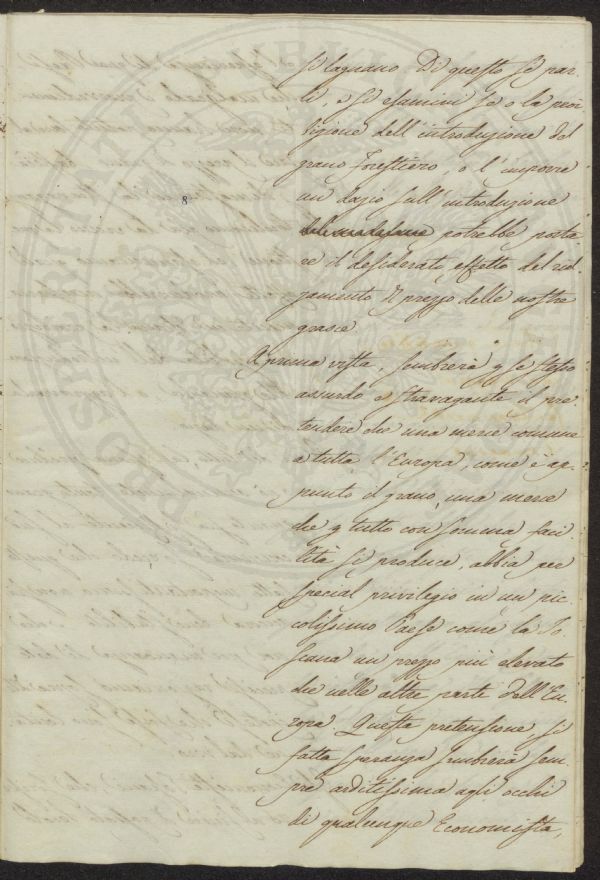 si lagnano. Di questo si par-
li, e si esamini se o la proi-
bizione dell'introduzione del
grano Forestiero, o l'imporre
un dazio sull'introduzione
potrebbe porta-
re il desiderato effetto del
il prezzo delle nostre
grasce
8
A prima vista, sembrerà p se stesso
assurdo e stravagante il pre-
tendere che una merce comune
a tutta l'Europa, come è ap-
punto il grano, una merce
che p tutto con somma faci-
lità si produce, abbia per
special privilegio in un pic-
colissimo Paese come la To-
scana un prezzo più elevato
che nelle altre parti dell'Eu-
ropa. Questa pretensione si
fatta speranza sembrerà sem-
pre arditissima agli occhi
di qualunque Economista,
PROSPERITAT